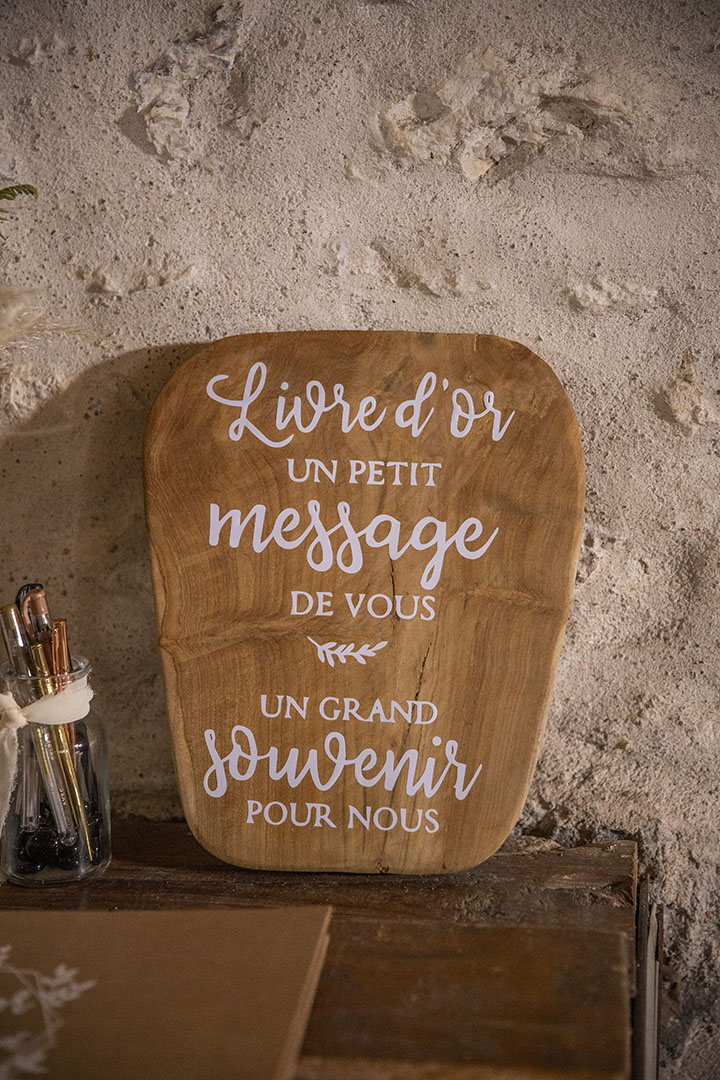 Livre d'or
UN PETIT
message
DE VOUS
UN GRAND
souvenir
POUR NOUS